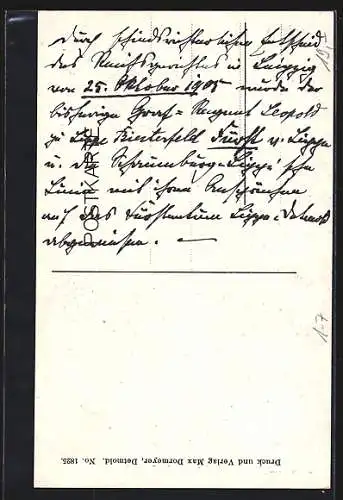 Durch schiedsrichterlichen Entscheid
des Reichsgerichtes in Leipzig
vom 25. Oktober 1905 wurde der
bisherige Graf=Regent Leopold
zu Lippe Biesterfeld Fürst v. Lippe
u. die Schaumburg-Lippe'sche
Linie mit ihren Ansprüchen
auf das Fürstentum Lippe-Detmold
abgewiesen. —
POSTKARTE
1-7
Druck und Verlag Max Dormeyer, Detmold. No. 1825.